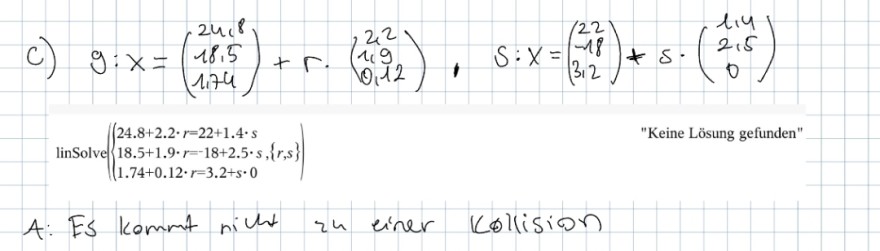 c) g: x = (24,8 18,5 1,74) + r · (2,2 1,9 0,12) , S: X = (22 -18 3,2) + s · (1,4 2,5 0)
linSolve({24.8+2.2·r=22+1.4·s
18.5+1.9·r=-18+2.5·s ,{r,s})
1.74+0.12·r=3.2+s·0
"Keine Lösung gefunden"
A: Es kommt nicht zu einer Kollision